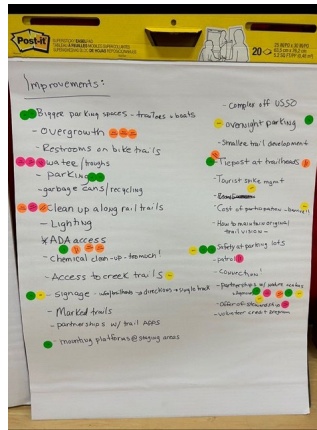 Post-it
20
Improvements:
Bigger parking spaces - trailers + boats
- Overgrowth
- Restrooms on bike trails
- water/troughs
- parking
- garbage cans/recycling
- Clean up along rail trails
- Lighting
* ADA access
- chemical clean-up - too much!
- Access to creek trails
- Signage - directions + single track
- Marked trails
- partnerships w/ trail APPS
- mounting platforms @ staging areas
- Complex off US50
- overnight parking
- Smaller trail development
- Tiepost at trailheads
- Tourist spike mgmt
- Cost of participation -
- How to maintain original
trail vision -
- Safety of parking lots
- patrol
- Connection!
- partnerships w/
- Offer of stewardship
- volunteer credit program